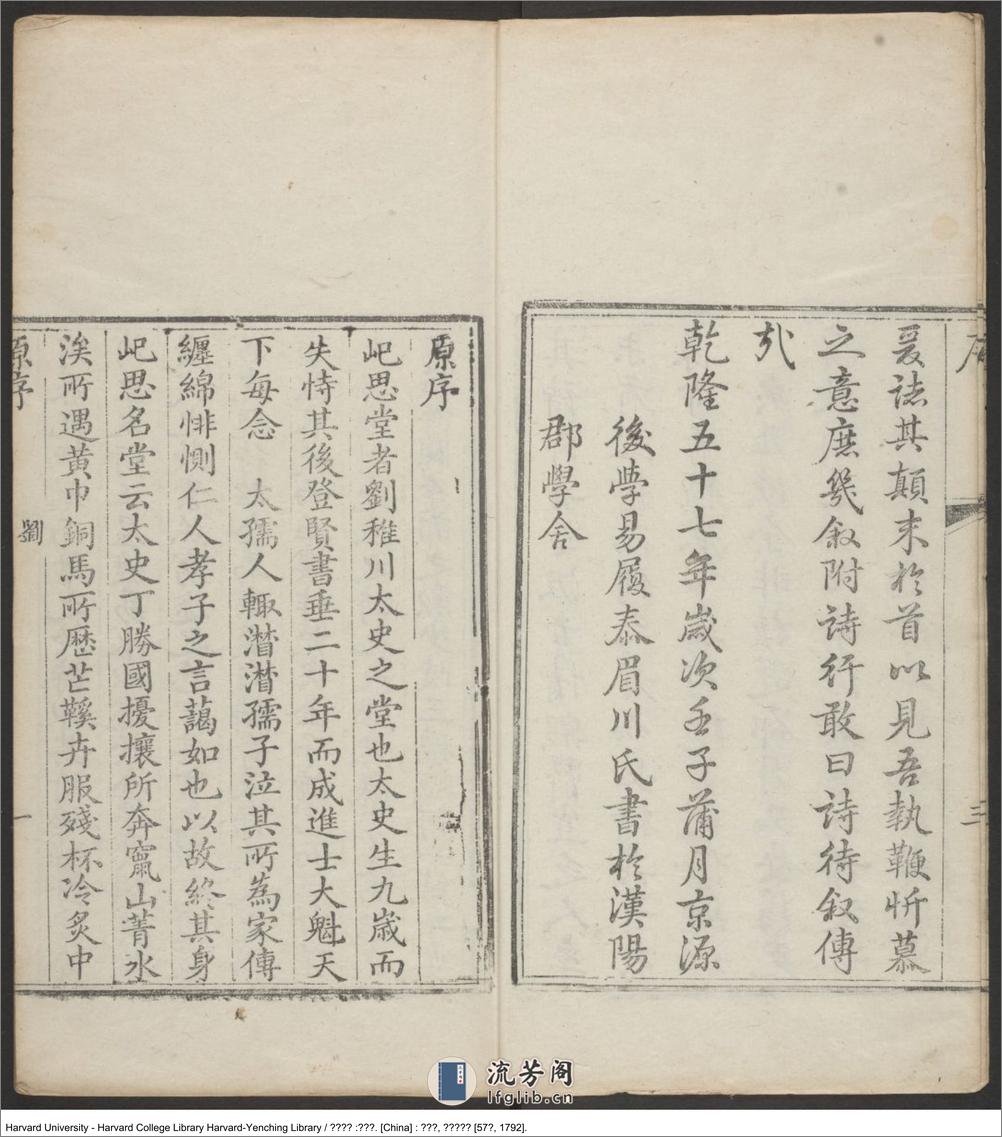 爰誌其顛末於首以見吾執鞭忻慕
之意庶幾叙附詩行敢曰詩待叙傳
㢤
乾隆五十七年歲次壬子蒲月京源
後學易履泰眉川氏書於漢陽
郡學舍
三
原序
屺思堂者劉稚川太史之堂也太史生九歲而
失恃其後登賢書垂二十年而成進士大魁天
下每念 太孺人輒潸潸孺子泣其所為家傳
纏綿悱惻仁人孝子之言藹如也以故終其身
屺思名堂云太史丁勝國擾攘所奔竄山菁水
涘所遇黃巾銅馬所歷芒鞵卉服殘杯冷炙中
原序
劉
一
流芳阁
lfglib.cn
Harvard University - Harvard College Library Harvard-Yenching Library / ???? :???. [China] : ???, ????? [57?, 1792].